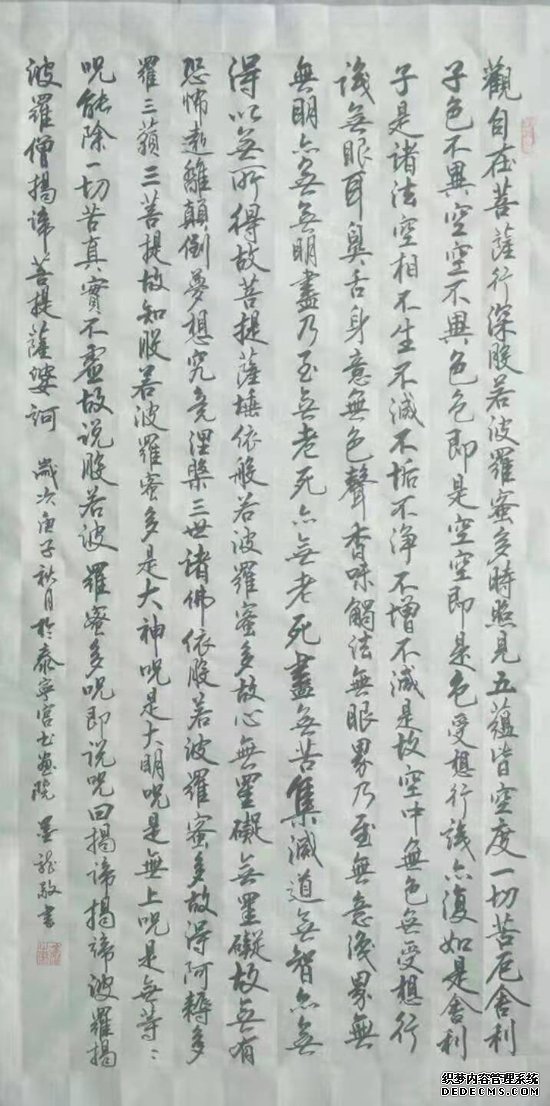 觀自在菩薩行深般若波羅蜜多時照見五蘊皆空度一切苦厄舍利
子色不異空空不異色色即是空空即是色受想行識亦復如是舍利
子是諸法空相不生不滅不垢不淨不增不減是故空中無色無受想行
識無眼耳鼻舌身意無色聲香味觸法無眼界乃至無意識界無
無明亦無無明盡乃至無老死亦無老死盡無苦集滅道無智亦無
得以無所得故菩提薩埵依般若波羅蜜多故心無罣礙無罣礙故無有
恐怖遠離顛倒夢想究竟涅槃三世諸佛依般若波羅蜜多故得阿耨多
羅三藐三菩提故知般若波羅蜜多是大神呪是大明呪是無上呪是無等〻
呪能除一切苦真實不虛故説般若波羅蜜多呪即説呪曰揭諦揭諦波羅揭
波羅僧揭諦菩提薩婆訶 歲次庚子秋月於泰寧宮书畫院 墨龍敬書
织梦内容管理系统
DEDECMS.COM